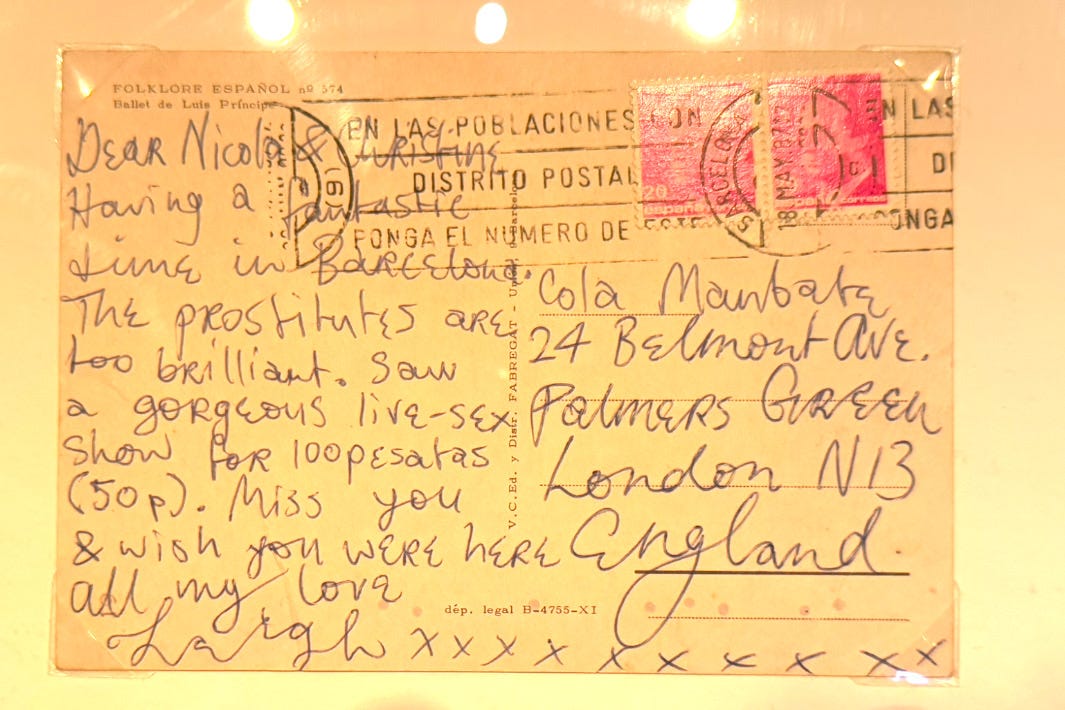 FOLKLORE ESPAÑOL nº 574
Ballet de Luis Príncipe
EN LAS POBLACIONES CON
DISTRITO POSTAL
PONGA EL NUMERO DE ESTE
EN LAS
DI
PONGA
BARCELONA
18 MAY 87
20
españa
correos
Dear Nicola & Christine
Having a fantastic
time in Barcelona.
The prostitutes are
too brilliant. Saw
a gorgeous live-sex
show for 100pesatas
(50p). Miss you
& wish you were here
all my love
Leigh xxxxxxxxxx
V.C. Ed. y Distr. FABREGAT - Barcelona
Cola
24 Belmont Ave.
Palmers Green
London N13
England
dép. legal B-4755-XI